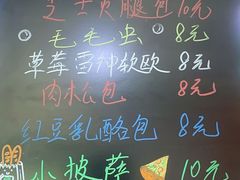 芝士火腿包10元
毛毛虫 8元
草莓雷神软欧 8元
肉松包 8元
红豆乳酪包 8元
小披萨 10元